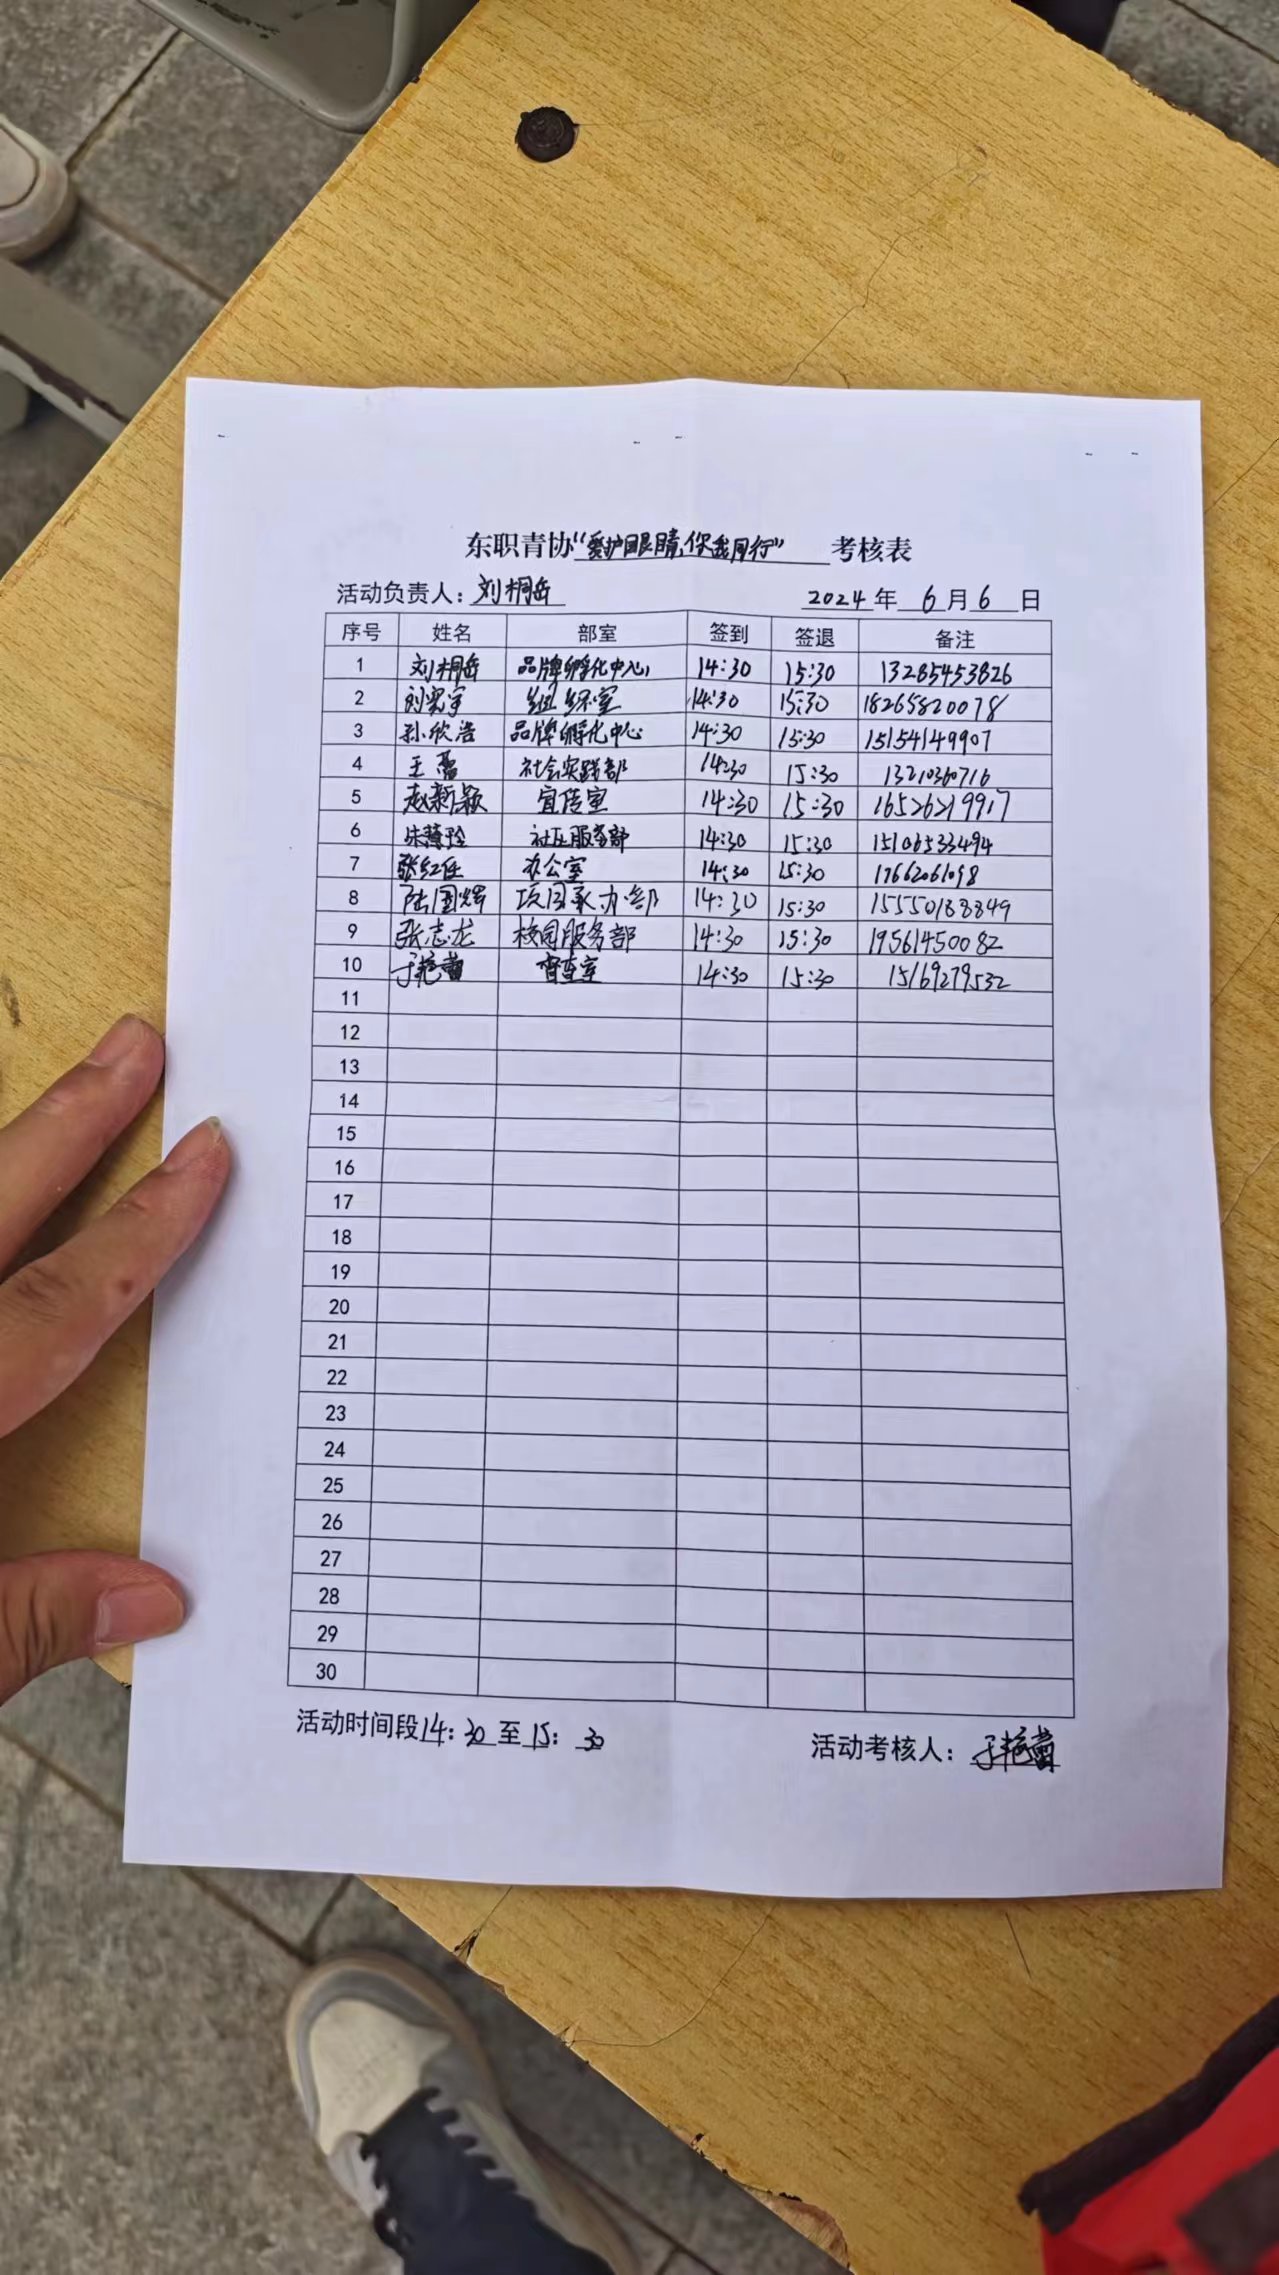 东职青协“爱护眼睛,你我同行” 考核表
活动负责人：刘桐岳 2024年 6月 6 日
序号 姓名 部室 签到 签退 备注
1 刘桐岳 品牌孵化中心 14:30 15:30 13285453826
2 刘 宇 组织室 14:30 15:30 18265820078
3 孙欣浩 品牌孵化中心 14:30 15:30 15154149907
4 王 社会实践部 14:30 15:30 13210360716
5 赵新颖 宣传室 14:30 15:30 16526219917
6 朱慧玲 社区服务部 14:30 15:30 15106533494
7 张红任 办公室 14:30 15:30 17662061098
8 陆国辉 项目承办部 14:30 15:30 15550188849
9 张志龙 校园服务部 14:30 15:30 19561450082
10 于艳蕾 督查室 14:30 15:30 15169279532
11
12
13
14
15
16
17
18
19
20
21
22
23
24
25
26
27
28
29
30
活动时间段14：30至15：30 活动考核人：于艳蕾